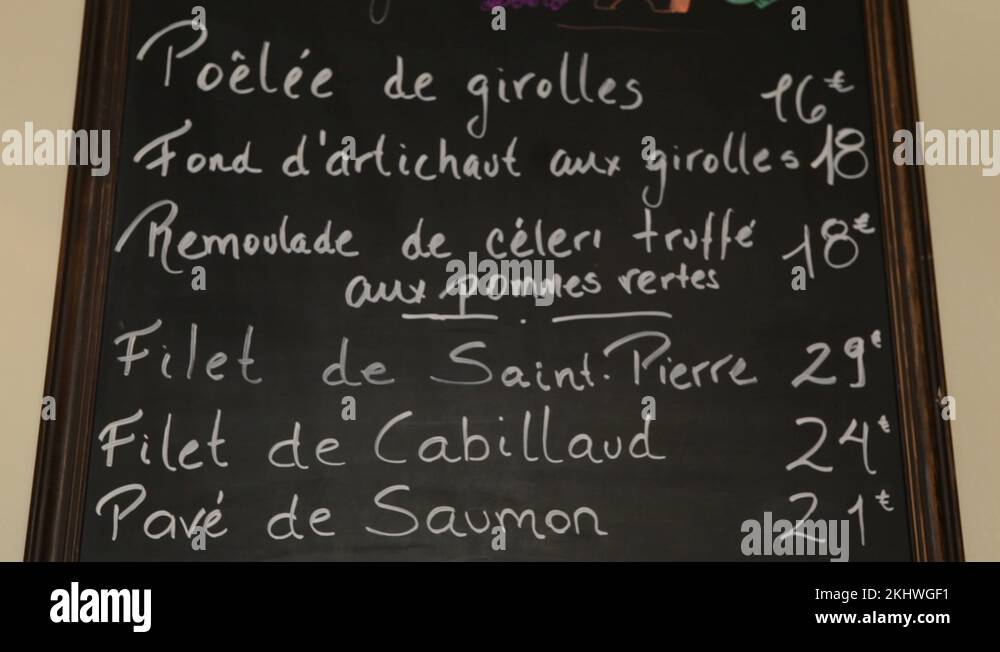 Poêlée de girolles 16€
Fond d'artichaut aux girolles 18
Remoulade de céleri truffé 18€
aux pommes vertes
Filet de Saint-Pierre 29€
Filet de Cabillaud 24€
Pavé de Saumon 21€
alamy
Image ID: 2KHWGF1
www.alamy.com